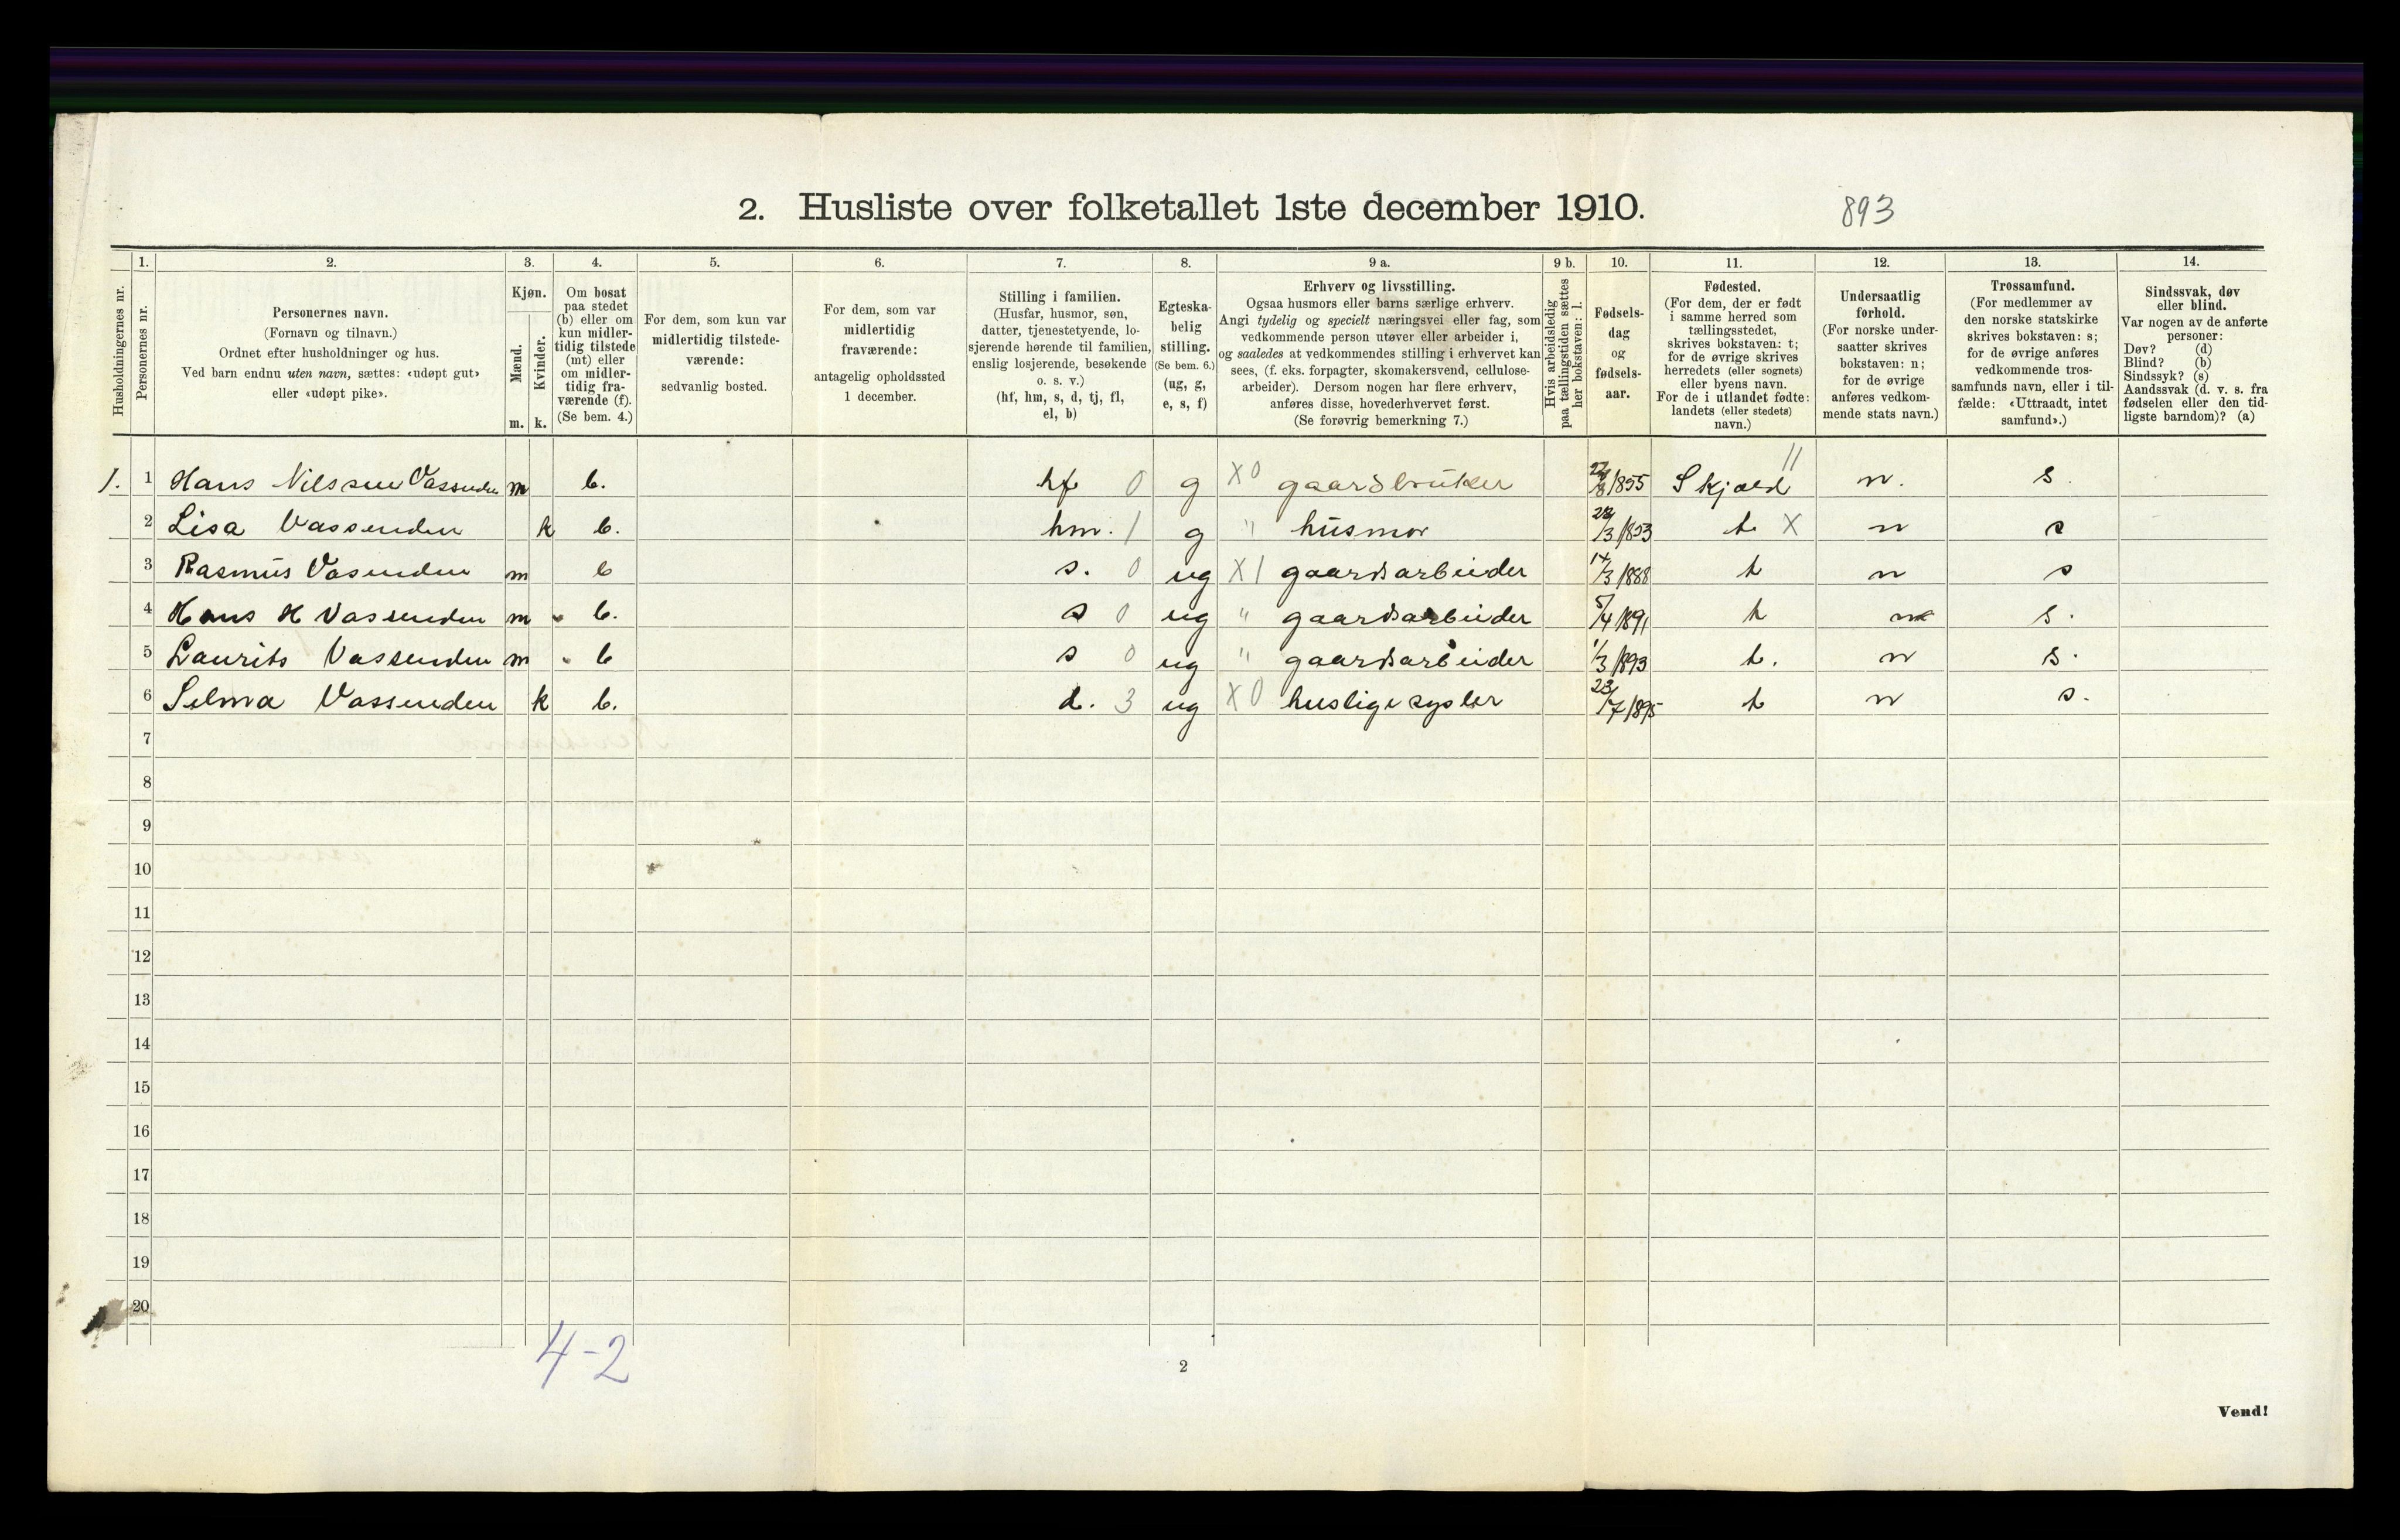 2. Husliste over folketallet 1ste december 1910.
893
Husholdningernes nr.
1.
Personernes nr.
2.
Personernes navn.
(Fornavn og tilnavn.)
Ordnet efter husholdninger og hus.
Ved barn endnu uten navn, sættes: «udøpt gut»
eller «udøpt pike».
3.
Kjøn.
Mænd.
Kvinder.
m. k.
4.
Om bosat
paa stedet
(b) eller om
kun midler-
tidig tilstede
(mt) eller
om midler-
tidig fra-
værende (f).
(Se bem. 4.)
5.
For dem, som kun var
midlertidig tilstede-
værende:
sedvanlig bosted.
6.
For dem, som var
midlertidig
fraværende:
antagelig opholdssted
1 december.
7.
Stilling i familien.
(Husfar, husmor, søn,
datter, tjenestetyende, lo-
sjerende hørende til familien,
enslig losjerende, besøkende
o. s. v.)
(hf, hm, s, d, tj, fl,
el, b)
8.
Egteska-
belig
stilling.
(Se bem. 6.)
(ug, g,
e, s, f)
9 a.
Erhverv og livsstilling.
Ogsaa husmors eller barns særlige erhverv.
Angi tydelig og specielt næringsvei eller fag, som
vedkommende person utøver eller arbeider i,
og saaledes at vedkommendes stilling i erhvervet kan
sees, (f. eks. forpagter, skomakersvend, cellulose-
arbeider). Dersom nogen har flere erhverv,
anføres disse, hovederhvervet først.
(Se forøvrig bemerkning 7.)
9 b.
Hvis arbeidsledig
paa tællingstiden sættes
her bokstaven: l.
10.
Fødsels-
dag
og
fødsels-
aar.
11.
Fødested.
(For dem, der er født
i samme herred som
tællingsstedet,
skrives bokstaven: t;
for de øvrige skrives
herredets (eller sognets)
eller byens navn.
For de i utlandet fødte:
landets (eller stedets)
navn.)
12.
Undersaatlig
forhold.
(For norske under-
saatter skrives
bokstaven: n;
for de øvrige
anføres vedkom-
mende stats navn.)
13.
Trossamfund.
(For medlemmer av
den norske statskirke
skrives bokstaven: s;
for de øvrige anføres
vedkommende tros-
samfunds navn, eller i til-
fælde: «Uttraadt, intet
samfund».)
14.
Sindssvak, døv
eller blind.
Var nogen av de anførte
personer:
Døv? (d)
Blind? (b)
Sindssyk? (s)
Aandssvak (d. v. s. fra
fødselen eller den tid-
ligste barndom)? (a)
1. 1 Hans Nilssen Vassenden m b. hf 0 g X0 gaardbruker /8 1855 Skjold 11 n. s.
2 Lisa Vassenden k b. hm. 1 g " husmor /3 1853 t X n s
3 Rasmus Vasenden m b s. 0 ug X1 gaardsarbeider 14/3 1888 t n s
4 Hans H Vassenden m b. s 0 ug " gaardsarbeider 5/4 1891 t n s.
5 Laurits Vassenden m b s 0 ug " gaardsarbeider 1/3 1893 t. n s.
6 Selma Vassenden k b. d. 3 ug X0 huslige sysler 23/7 1895 t n s.
7
8
9
10
11
12
13
14
15
16
17
18
19
20
4-2
2
Vend!